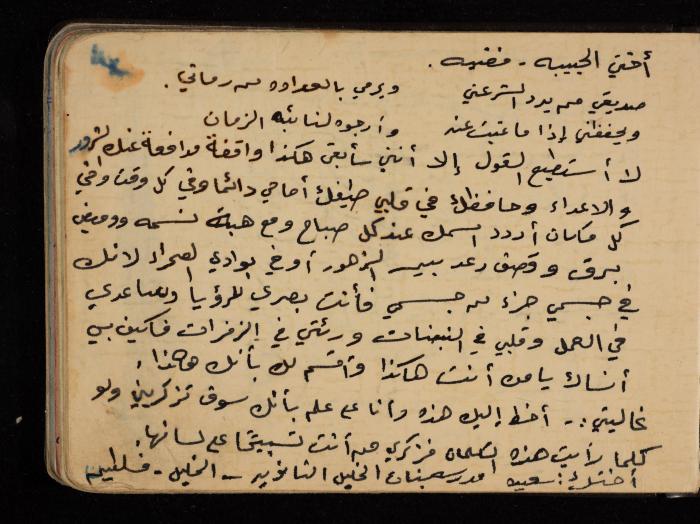 أختي الحبيبه - فضيه.
صديقي من يرد الشر عني ويرمي بالعداوه من رماني.
ويحفظني إذا ما غبت عنه وأرجوه لنائبة الزمان
لا أستطيع القول إلا أنني سأبقى هكذا واقفة مدافعة عنك الشرور
والاعداء وحافظك في قلبي طيفك أمامي دائما وفي كل وقت وفي
كل مكان أردد اسمك عند كل صباح ومع هبة نسمه ووميض
برق وقصف رعد بين الزهور أو في بوادي الصحراء لانك
في جسمي جزء من جسمي فأنت بصري للرؤيا وساعدي
في العمل وقلبي في النبضات ورئتي في الزفرات فكيف بي
أنساك يا من أنت هكذا وأقسم لك بأنك هكذا.
غاليتي:- أخط إليك هذه وأنا على علم بأنك سوف تذكريني ولو
كلما رأيت هذه الكلمات فزكري من أنت تسبيحا على لسانها.
أختك: سعيده مدرسة بنات الخليل الثانويه - الخليل - فلسطين